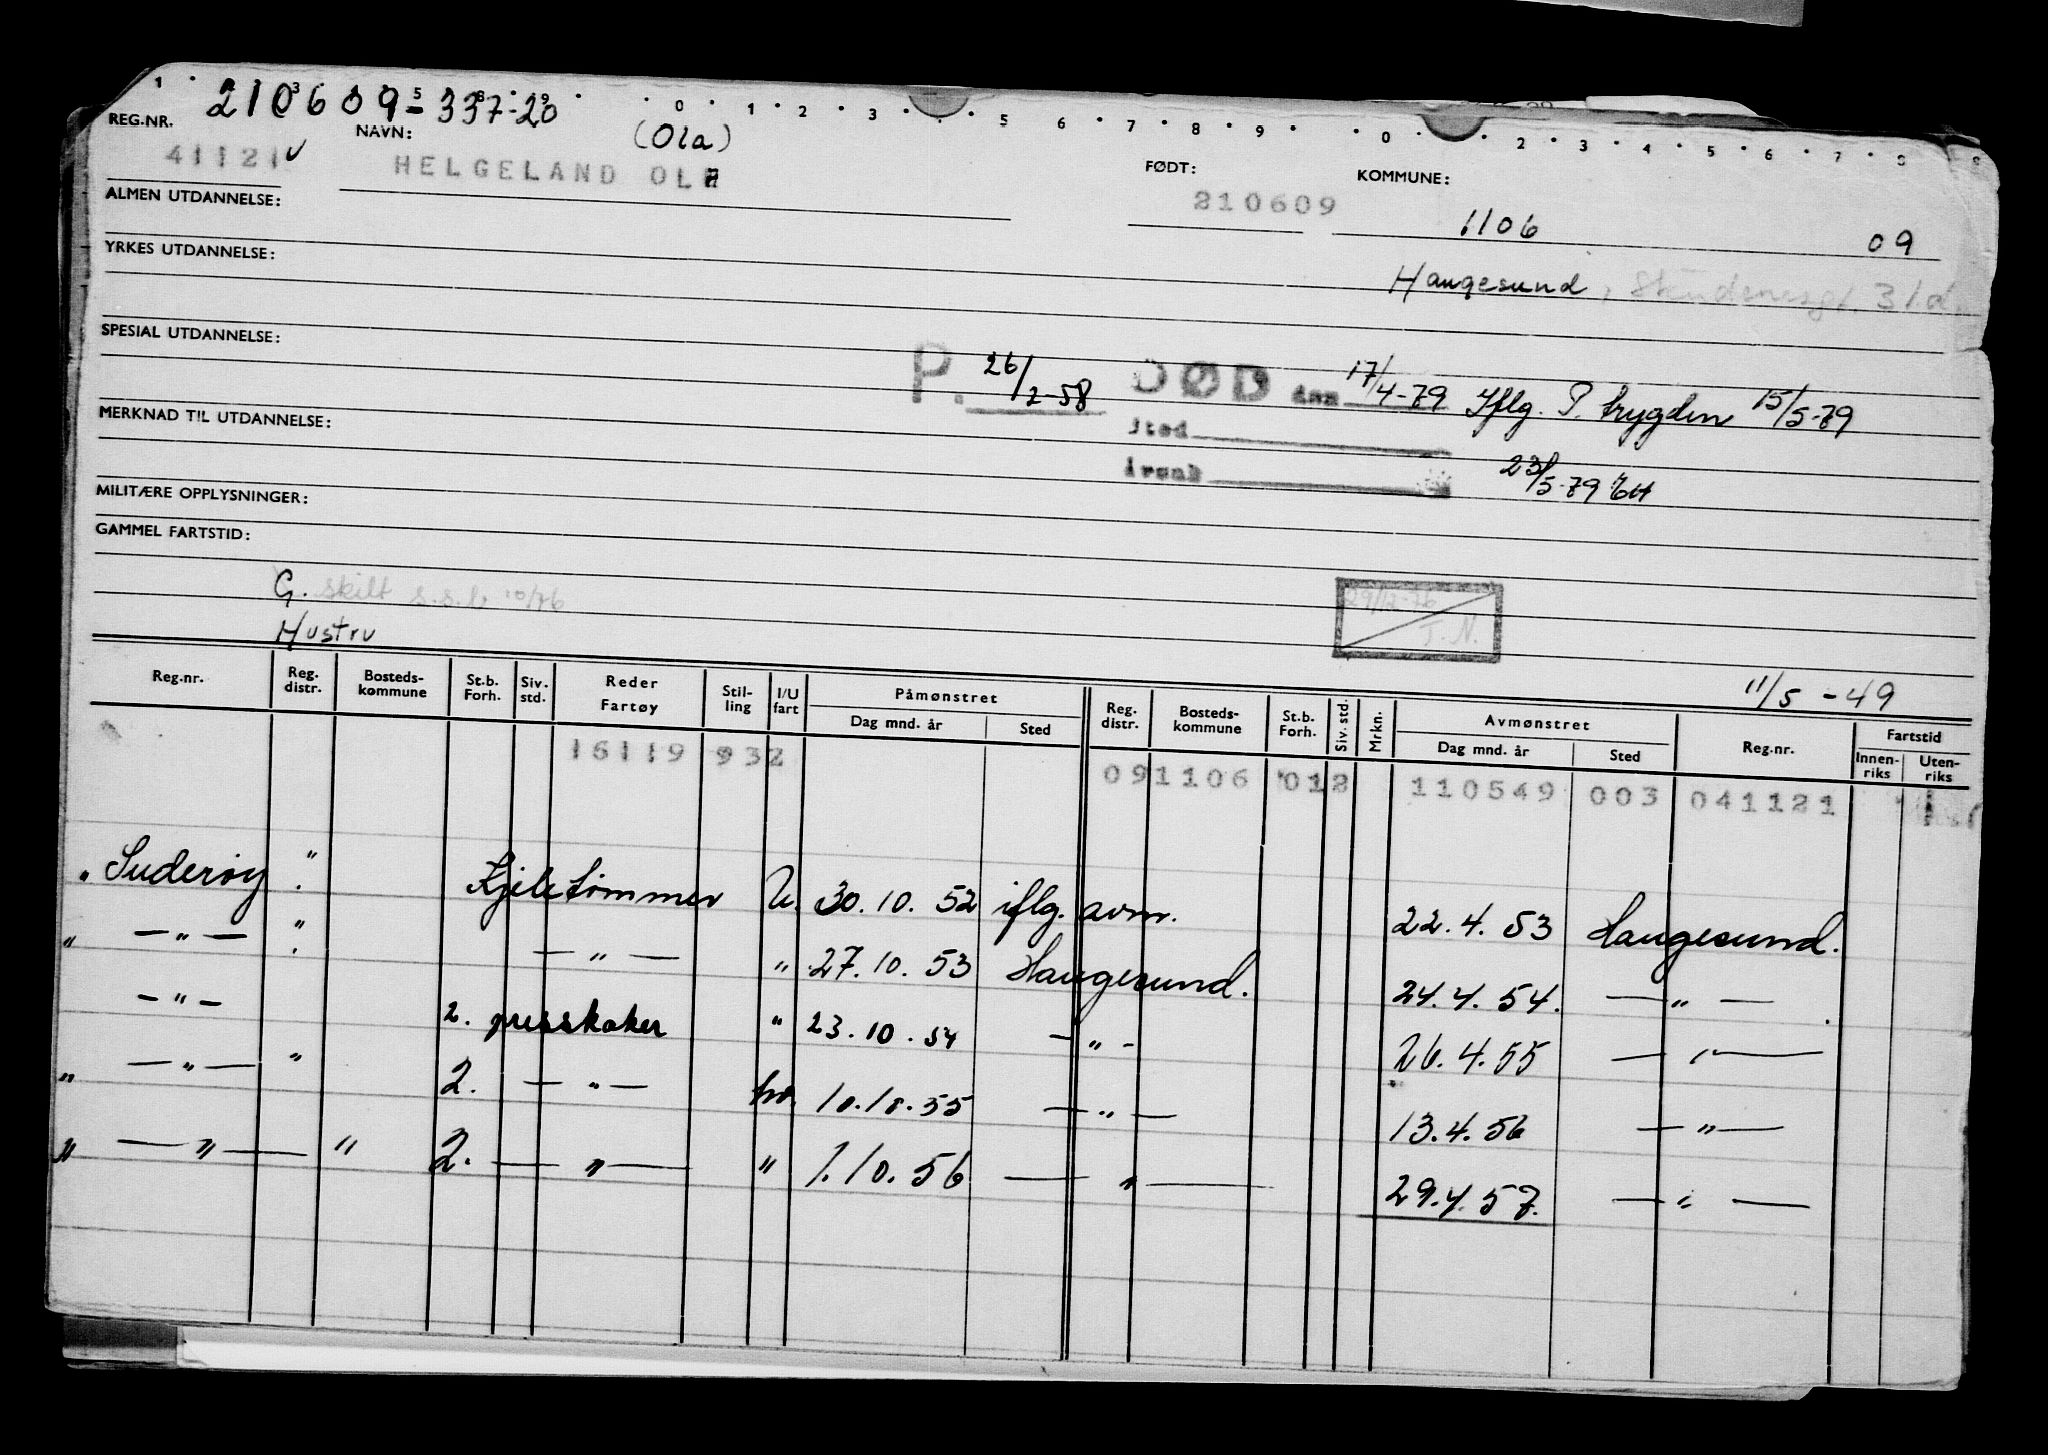 210609-337-20
REG.NR. 41121 v NAVN: HELGELAND OLE (Ola) FØDT: 210609 KOMMUNE: 1106 09
ALMEN UTDANNELSE:
Haugesund, 31d.
YRKES UTDANNELSE:
SPESIAL UTDANNELSE:
P. 26/2-58 DØD den 17/4-79 Iflg. P. trygden 15/5-79
Sted
MERKNAD TIL UTDANNELSE:
Årsak 23/5-79
MILITÆRE OPPLYSNINGER:
GAMMEL FARTSTID:
G. skilt s.s.b. 10/76
29/12-76 T.N.
Hustru
11/5-49
Reg.nr. Reg. distr. Bosteds-kommune St.b. Forh. Siv. std. Reder Fartøy Stil-ling I/U fart Påmønstret Dag mnd. år Sted Reg. distr. Bosteds-kommune St.b. Forh. Siv. std. Mrkn. Avmønstret Dag mnd. år Sted Reg.nr. Fartstid Innen-riks Uten-riks
16119 932 091106 012 110549 003 041121 1
" Suderøy " Kjeletømmer U. 30.10.52 iflg. avm. 22.4.53 Haugesund.
" —"— " —"— " 27.10.53 Haugesund. 24.4.54. —"—
—"— 2. presskoker " 23.10.54 —"— 26.4.55 —"—
" —"— " 2. —"— hv. 10.10.55 —"— 13.4.56 —"—
" —"— " 2. —"— " 1.10.56 —"— 29.4.57. —"—